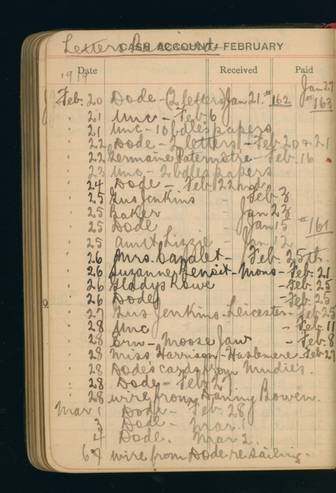 Letters Received
CASH ACCOUNT—FEBRUARY
Date Received Paid
1919 Jan 27
Feb. 20 Dode - (2 letters) Jan 21. #162 #163
21 Unc - Feb. 6
21 Unc - 10 bdles papers
22 Dode - 2 letters - Feb 20 & 21
22 Germaine Paternotre - Feb. 16
23 Unc - 2 bdles papers
24 Dode - Feb 22nd
25 Gus Jenkins Feb 3
25 Baker Jan 23
25 Dode Jan 15 #161
25 Aunt Lizzie - Jan 12
26 Mrs. - Feb. 25th.
26 Suzanne Benoit - Mons - Feb. 21
26 Gladys Rowe - Feb 25
26 Dode - Feb 25
27 Gus Jenkins - Leicester - Feb 25
28 Unc - Feb 11
28 Ern - Moose Jaw - Feb. 8
28 Miss Harrison - Haslemere - Feb 27
28 Dode's cards from Mudies
28 Dode - Feb 27.
28 wire from Fanny Bowen.
Mar 1 Dode - Feb. 28
3 Dode - Mar. 1
4 Dode. Mar 2.
6 wire from Dode re sailing.